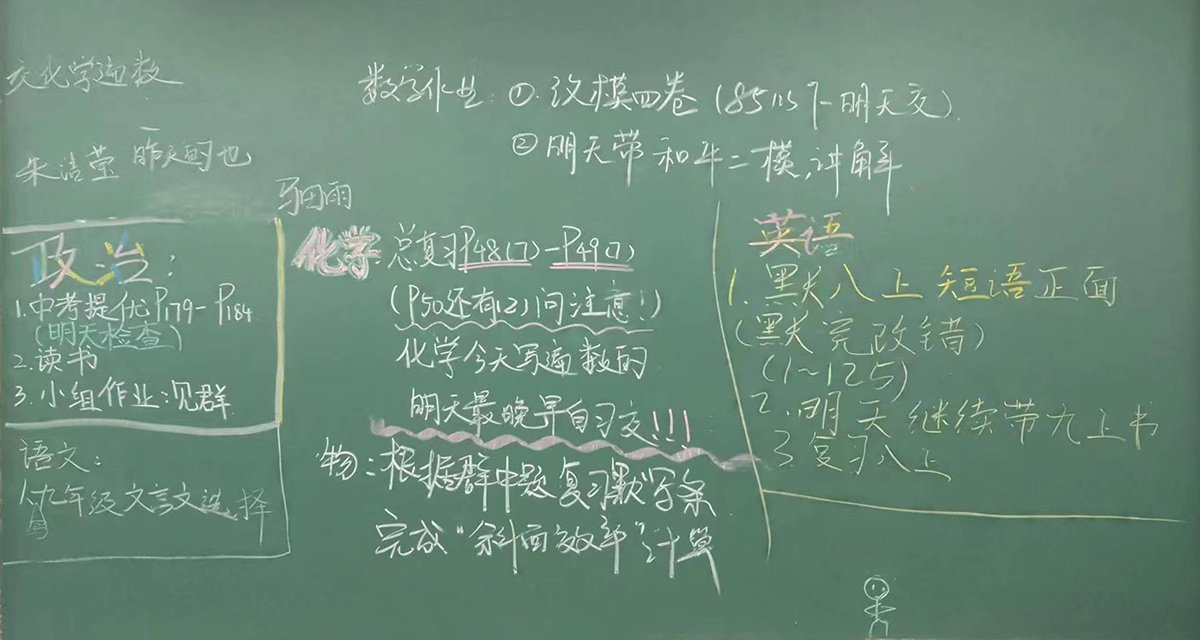 交化学遍数
朱浩莹 昨天的也
马田雨
数学作业:①. 汶模四卷(85115下-明天交)
②明天带和平二模,讲解
政治:
1.中考提优P179-P184
(明天检查)
2.读书
3.小组作业:见群
语文:
九年级文言文选择
写
化学 总复习P48(7)-P49(7)
(P50还有(2)问注意!)
化学今天写遍数的
明天最晚早自习交!!!
物:根据群中题复习默写条
完成“斜面效率”计算
英语
1.默八上短语正面
(默完改错)
(1~125)
2.明天继续带九上书
3.复习八上